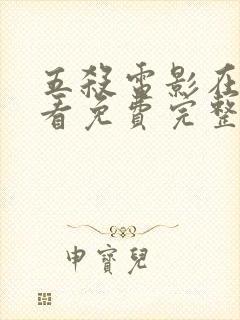 五殺電影在
看免費完整
申寶兒